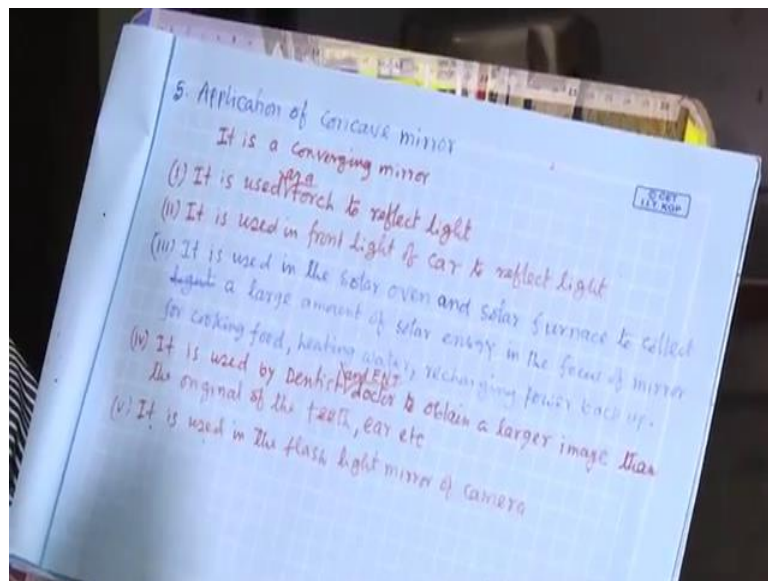 5. Application of Concave mirror
It is a Converging mirror
(i) It is used in a torch to reflect light
(ii) It is used in front light of car to reflect light
(iii) It is used in the solar oven and solar furnace to collect
a large amount of solar energy in the focus of mirror
for cooking food, heating water, recharging power back up.
(iv) It is used by Dentist and ENT doctor to obtain a larger image than
the original of the teeth, ear etc
(v) It is used in the flash light mirror of camera
© CET
I.I.T. KGP